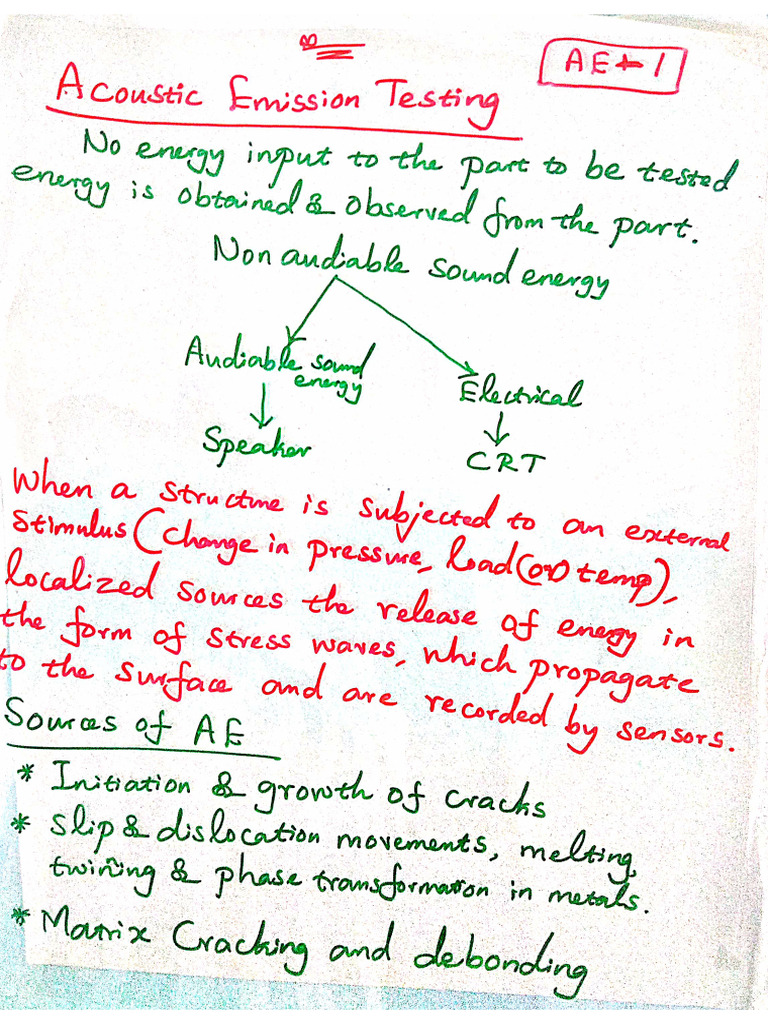 AE-1
Acoustic Emission Testing
No energy input to the part to be tested
energy is obtained & observed from the part.
Non audiable sound energy
Audiable sound
energy
Electrical
Speaker
CRT
When a structure is subjected to an external
stimulus (change in pressure, load (or) temp),
localized sources the release of energy in
the form of stress waves, which propagate
to the surface and are recorded by sensors.
Sources of AE
* Initiation & growth of cracks
* Slip & dislocation movements, melting,
twining & phase transformation in metals.
* Matrix Cracking and debonding